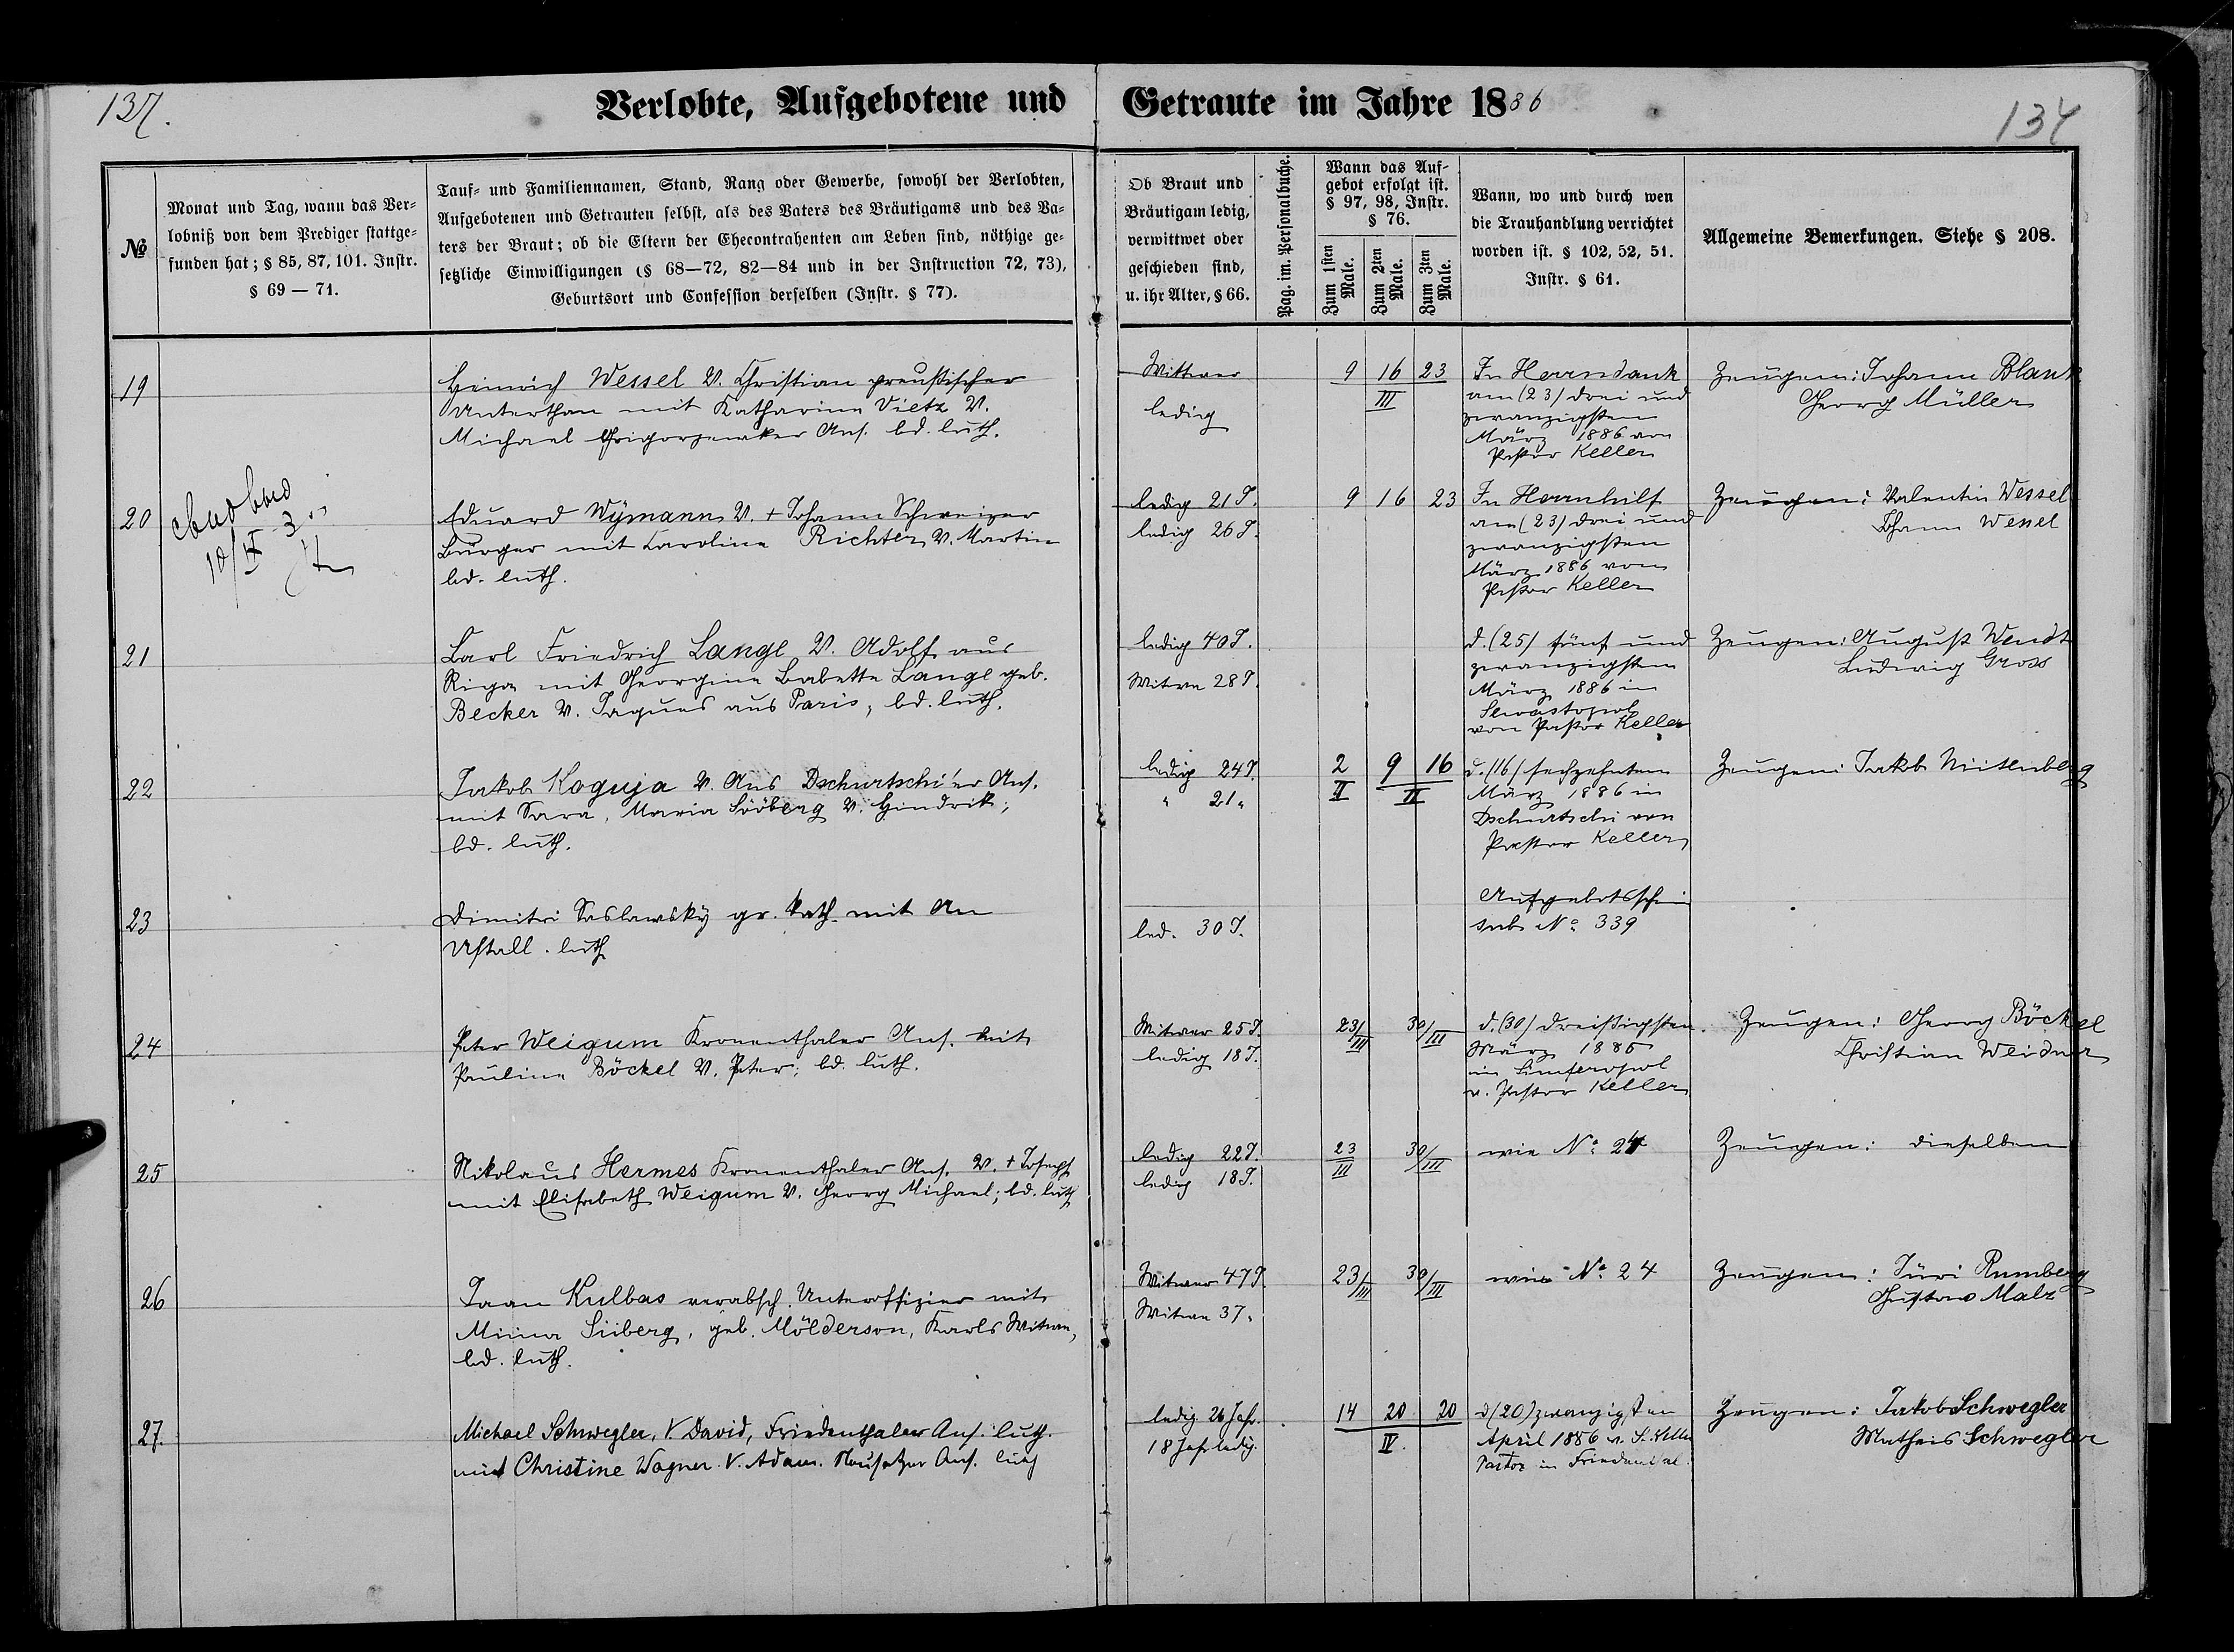 137.
Verlobte, Aufgebotene und Getraute im Jahre 1886
134
№
Monat und Tag, wann das Ver-
lobniß von dem Prediger stattge-
funden hat; § 85, 87, 101. Instr.
§ 69 — 71.
Tauf- und Familiennamen, Stand, Rang oder Gewerbe, sowohl der Verlobten,
Aufgebotenen und Getrauten selbst, als des Vaters des Bräutigams und des Va-
ters der Braut; ob die Eltern der Ehecontrahenten am Leben sind, nöthige ge-
setzliche Einwilligungen (§ 68—72, 82—84 und in der Instruction 72, 73),
Geburtsort und Confession derselben (Instr. § 77).
Ob Braut und
Bräutigam ledig,
verwittwet oder
geschieden sind,
u. ihr Alter, § 66.
Pag. im. Personalbuche.
Wann das Auf-
gebot erfolgt ist.
§ 97, 98, Instr.
§ 76.
Zum 1sten
Male.
Zum 2ten
Male.
Zum 3ten
Male.
Wann, wo und durch wen
die Trauhandlung verrichtet
worden ist. § 102, 52, 51.
Instr. § 61.
Allgemeine Bemerkungen. Siehe § 208.
19
Heinrich Wessel V. Christian preußischer
Unterthan mit Katharina Vietz V.
Michael Ans. bd. luth.
Wittwer
ledig
9 16 23
III
In Herrndank
am (23) drei und
zwanzigsten
März 1886 von
Pastor Keller
Zeugen: Johann Blank
Georg Müller
20
10/IX
Eduard Wÿmann V. + Johann Schweizer
Bürger mit Caroline Richter V. Martin
bd. luth.
ledig 21 J.
ledig 26 J.
9 16 23
In Herrnhilf
am (23) drei und
zwanzigsten
März 1886 vom
Pastor Keller
Zeugen: Valentin Wessel
Johann Wessel
21
Carl Friedrich Lange V. Adolf aus
Riga mit Georgine Babette Lange geb.
Becker V. Jaques aus Paris, bd. luth.
ledig 40 J.
Witwe 28 J.
d. (25) fünf und
zwanzigsten
März 1886 in
Sewastopol
von Pastor Keller
Zeugen: August Wendt
Ludwig Gross
22
Jakob Koguja V. Ans Dschurtschi'er Ans.
mit Sara, Maria Sööberg V. Hindrik;
bd. luth.
ledig 24 J.
" 21 "
2 9 16
II II
d. (16) sechzehnten
März 1886 in
Dschurtschi von
Pastor Keller
Zeugen: Jakob
23
Dimitri Saslawskÿ gr. kath. mit An
Ustall. luth
led. 30 J.
Aufgebotsschein
sub No 339
24
Peter Weigum Kronenthaler Ans. mit
Pauline Böckel V. Peter; bd. luth.
Witwer 25 J.
ledig 18 J.
23/III 30/III
d. (30) dreißigsten
März 1886
in Simferopol
v. Pastor Keller
Zeugen: Georg Böckel
Christian Weidner
25
Nikolaus Hermes Kronenthaler Ans. V. + Joseph
mit Elisabeth Weigum V. Georg Michael; bd. luth
ledig 22 J.
ledig 18 J.
23/III 30/III
wie No 24
Zeugen: dieselben
26
Jaan Kulbas verabsch. Unteroffizier mit
Miina Siiberg, geb. Mölderson, Karls Witwe,
bd. luth.
Witwer 47 J
Witwe 37 "
23/III 30/III
wie No 24
Zeugen: Jüri Rumberg
Gustav Malz
27.
Michael Schwegler, V. David, Friedenthaler Ans. luth.
mit Christine Wagner. V. Adam. Neusatzer Ans. luth
ledig 26 Jahr.
18 Jahr ledig.
14 20 20
IV.
d (20) zwanzigsten
April 1886 v. S. Keller
Pastor in Friedental.
Zeugen: Jakob Schwegler
Matheis Schwegler